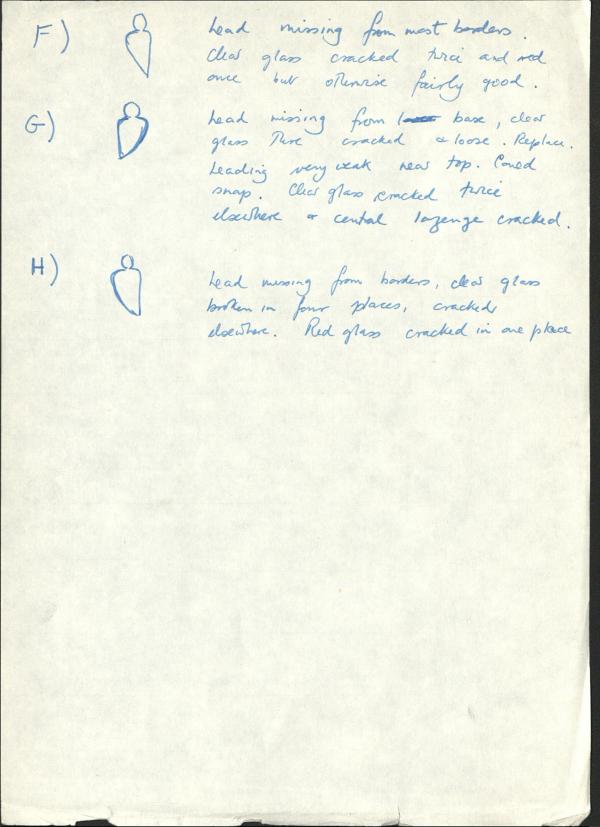 F) Lead missing from most borders.
Clear glass cracked twice and red
once but otherwise fairly good.
G) Lead missing from base, clear
glass there cracked & loose. Replace.
Leading very weak near top. Could
snap. Clear glass cracked twice
elsewhere & central lozenge cracked.
H) Lead missing from borders, clear glass
broken in four places, cracked
elsewhere. Red glass cracked in one place